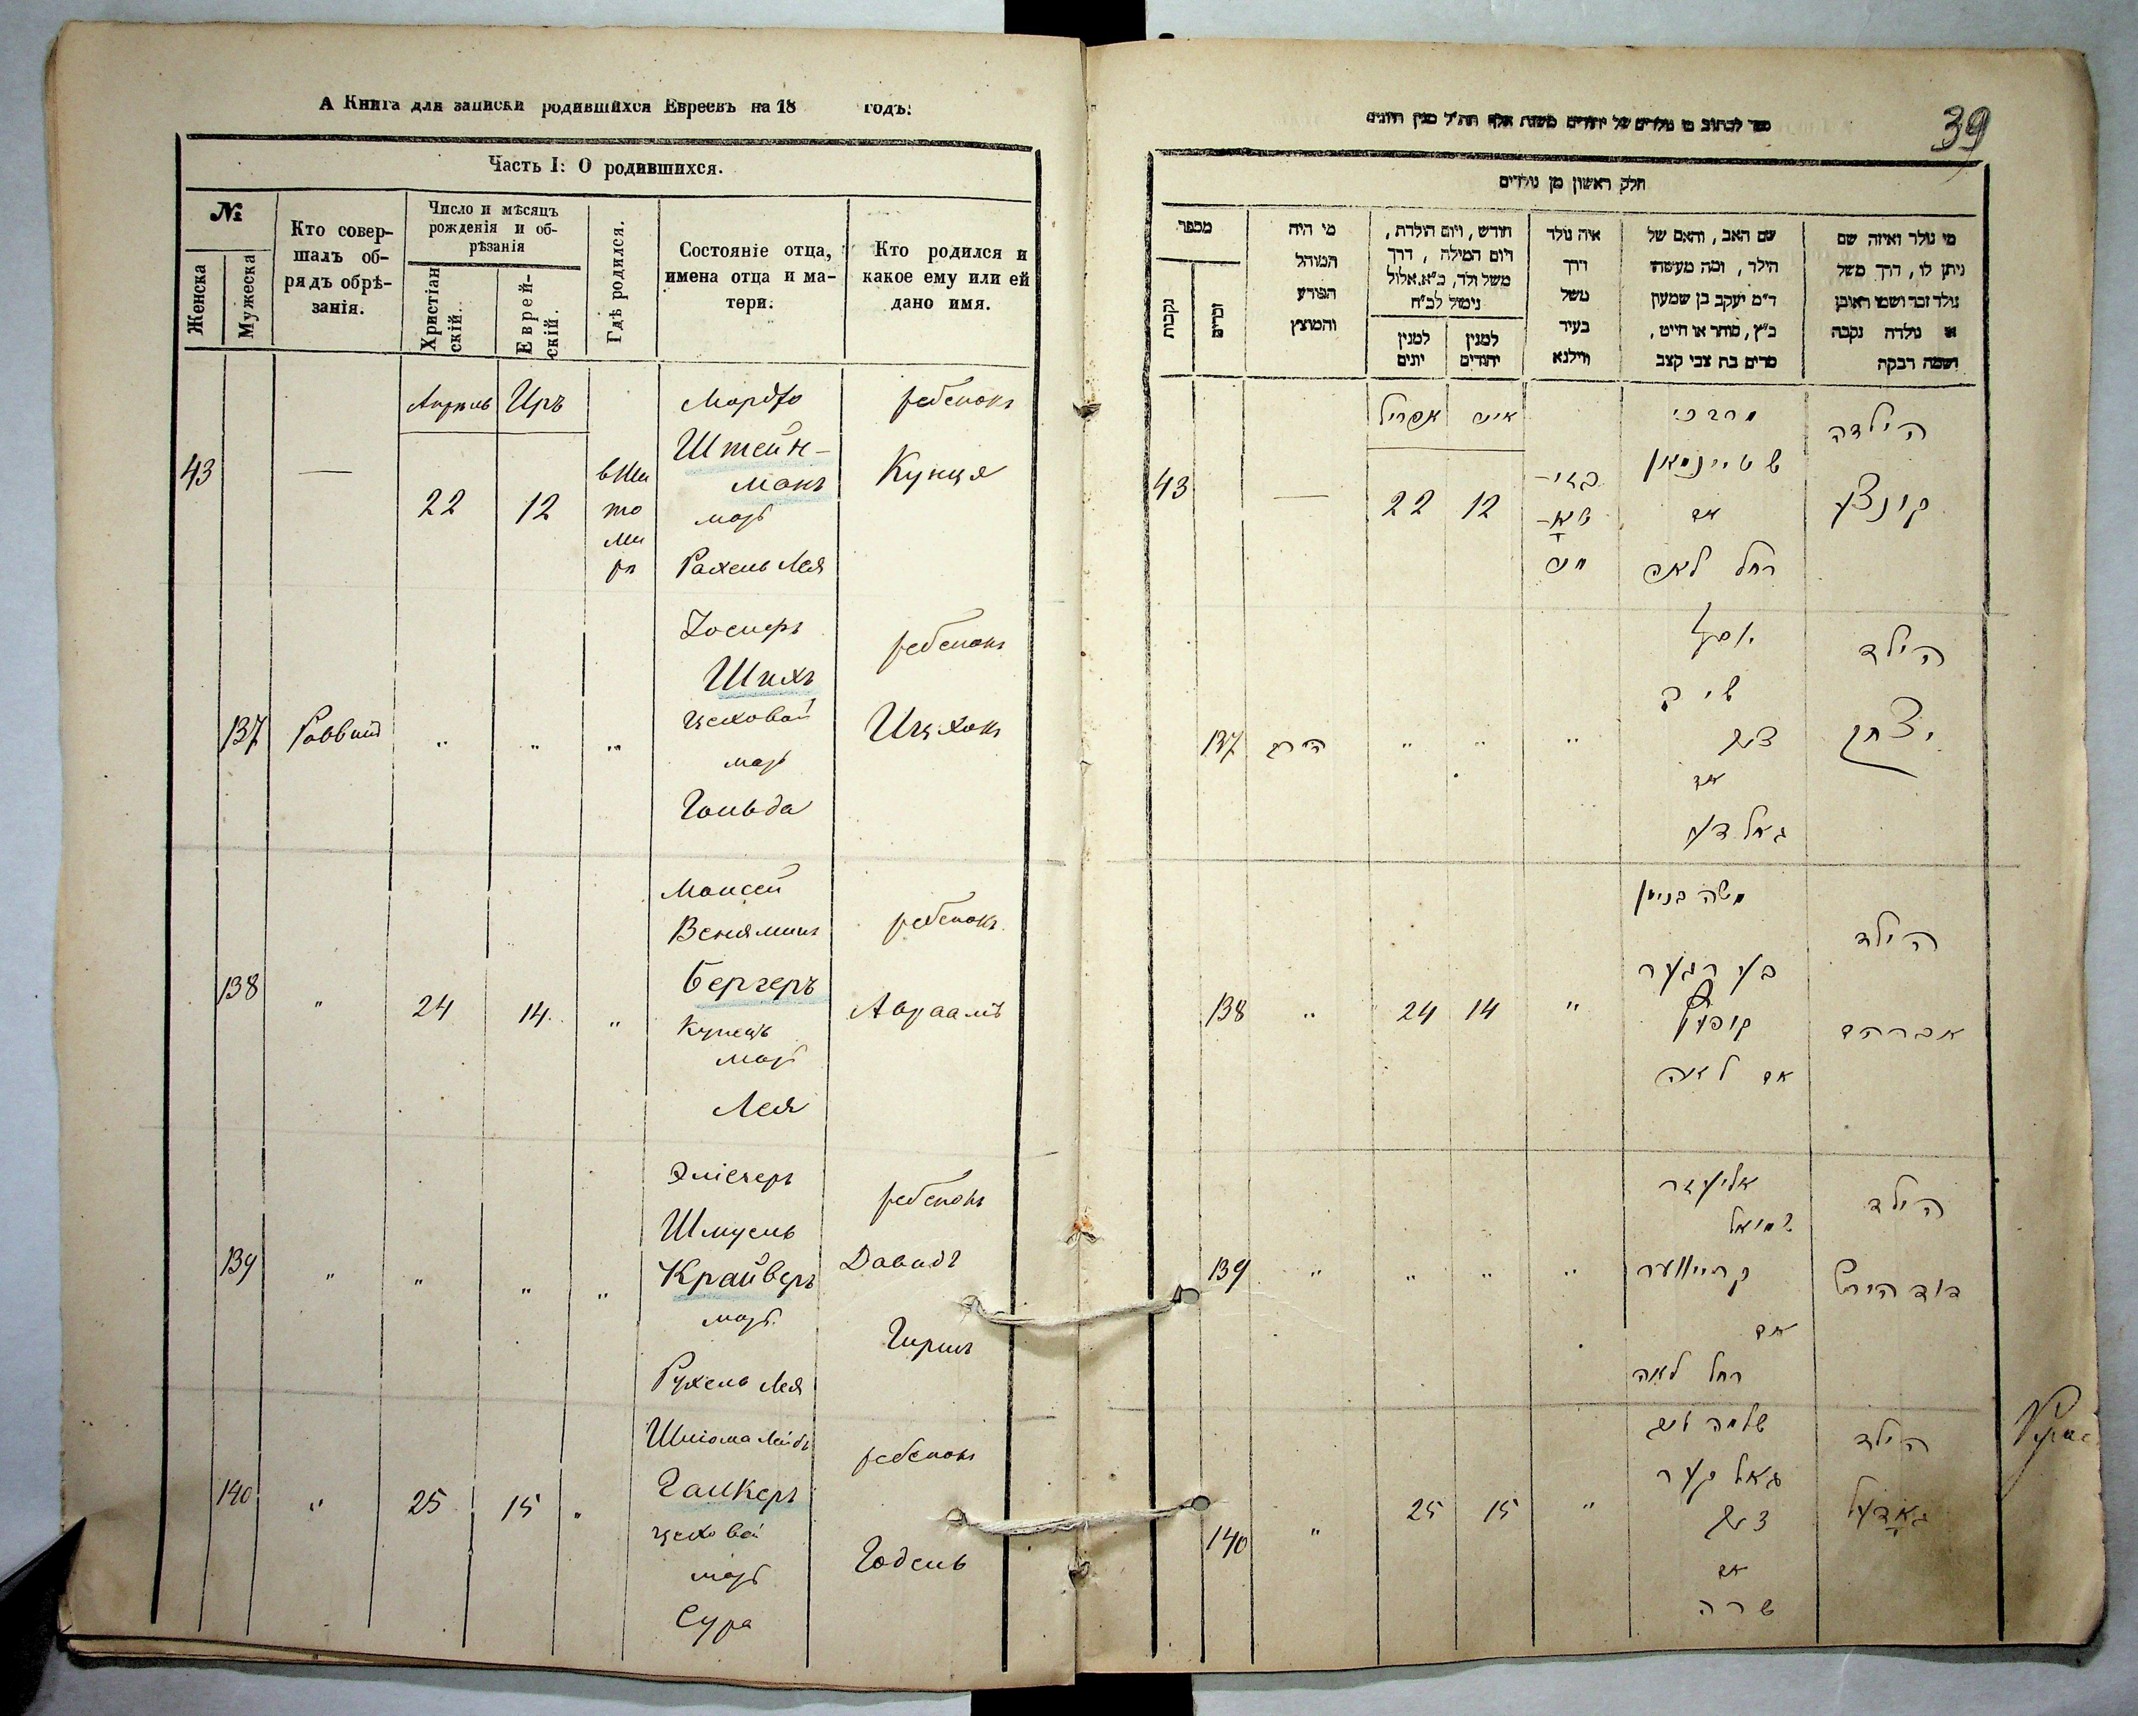 А Книга для записки родившихся Евреевъ на 18 годъ.
Часть I: О родившихся.
№
Женска
Мужеска
Кто совер-
шалъ об-
рядъ обрѣ-
занія.
Число и мѣсяцъ
рожденія и об-
рѣзанія
Христіан
скій.
Еврей-
скій.
Гдѣ родился.
Состояніе отца,
имена отца и ма-
тери.
Кто родился и
какое ему или ей
дано имя.
43
—
Апрель
22
Иръ
12
вжи
то
ми
рѣ
Мордко
Штейн-
манъ
мать
Рахель Лея
ребенокъ
Кунця
137
Раввинъ
"
"
"
Іосифъ
Шихъ
цеховой
мать
Гольда
ребенокъ
Ицхокъ
138
"
24
14
"
Моисей
Веняминъ
Бергеръ
Купецъ
мать
Лея
ребенокъ
Авраамъ
139
"
"
"
"
Эліезеръ
Шмуель
Крайверъ
мать
Рухель Лея
ребенокъ
Давидъ
Гиршъ
140
"
25
15
"
Шлiома Лейбъ
Галкеръ
цеховой
мать
Сура
ребенокъ
Годель
39
ספר לכתוב מי נולדים של יהודים משנת אלף תת״ל מנין היונים
חלק ראשון מן נולדים
מי נולד ואיזה שם
ניתן לו, דרך משל
נולד זכר ושמו ראובן
או נולדה נקבה
ושמה רבקה
שם האב, והאם של
הילד, ומה מעשהו
ד״מ יעקב בן שמעון
כ״ץ, סוחר או חייט,
מרים בת צבי קצב
איה נולד
דרך
משל
בעיר
ווילנא
חודש, ויום הולדת,
ויום המילה, דרך
משל ולד, כ״א.אלול
נימול לכ״ח
למנין
יהודים
למנין
יונים
מי היה
המוהל
הפורע
והמוצץ
מספר
זכרים
נקבות
הילדה
קונצע
מרדכי
שטיינמאן
אם
רחל לאה
אייר
12
אפריל
22
—
43
הילד
יצחק
יוסף
שיך
צעך
אם
גאלדע
"
"
"
הרב
137
הילד
אברהם
משה בנימין
בערגער
קופץ
אם לאה
"
14
24
"
138
הילד
דוד הירש
אליעזר
שמואל
קרייווער
אם
רחל לאה
"
"
"
"
139
הילד
גאדעל
שלמה ליב
גאלקער
צעך
אם
שרה
"
15
25
"
140